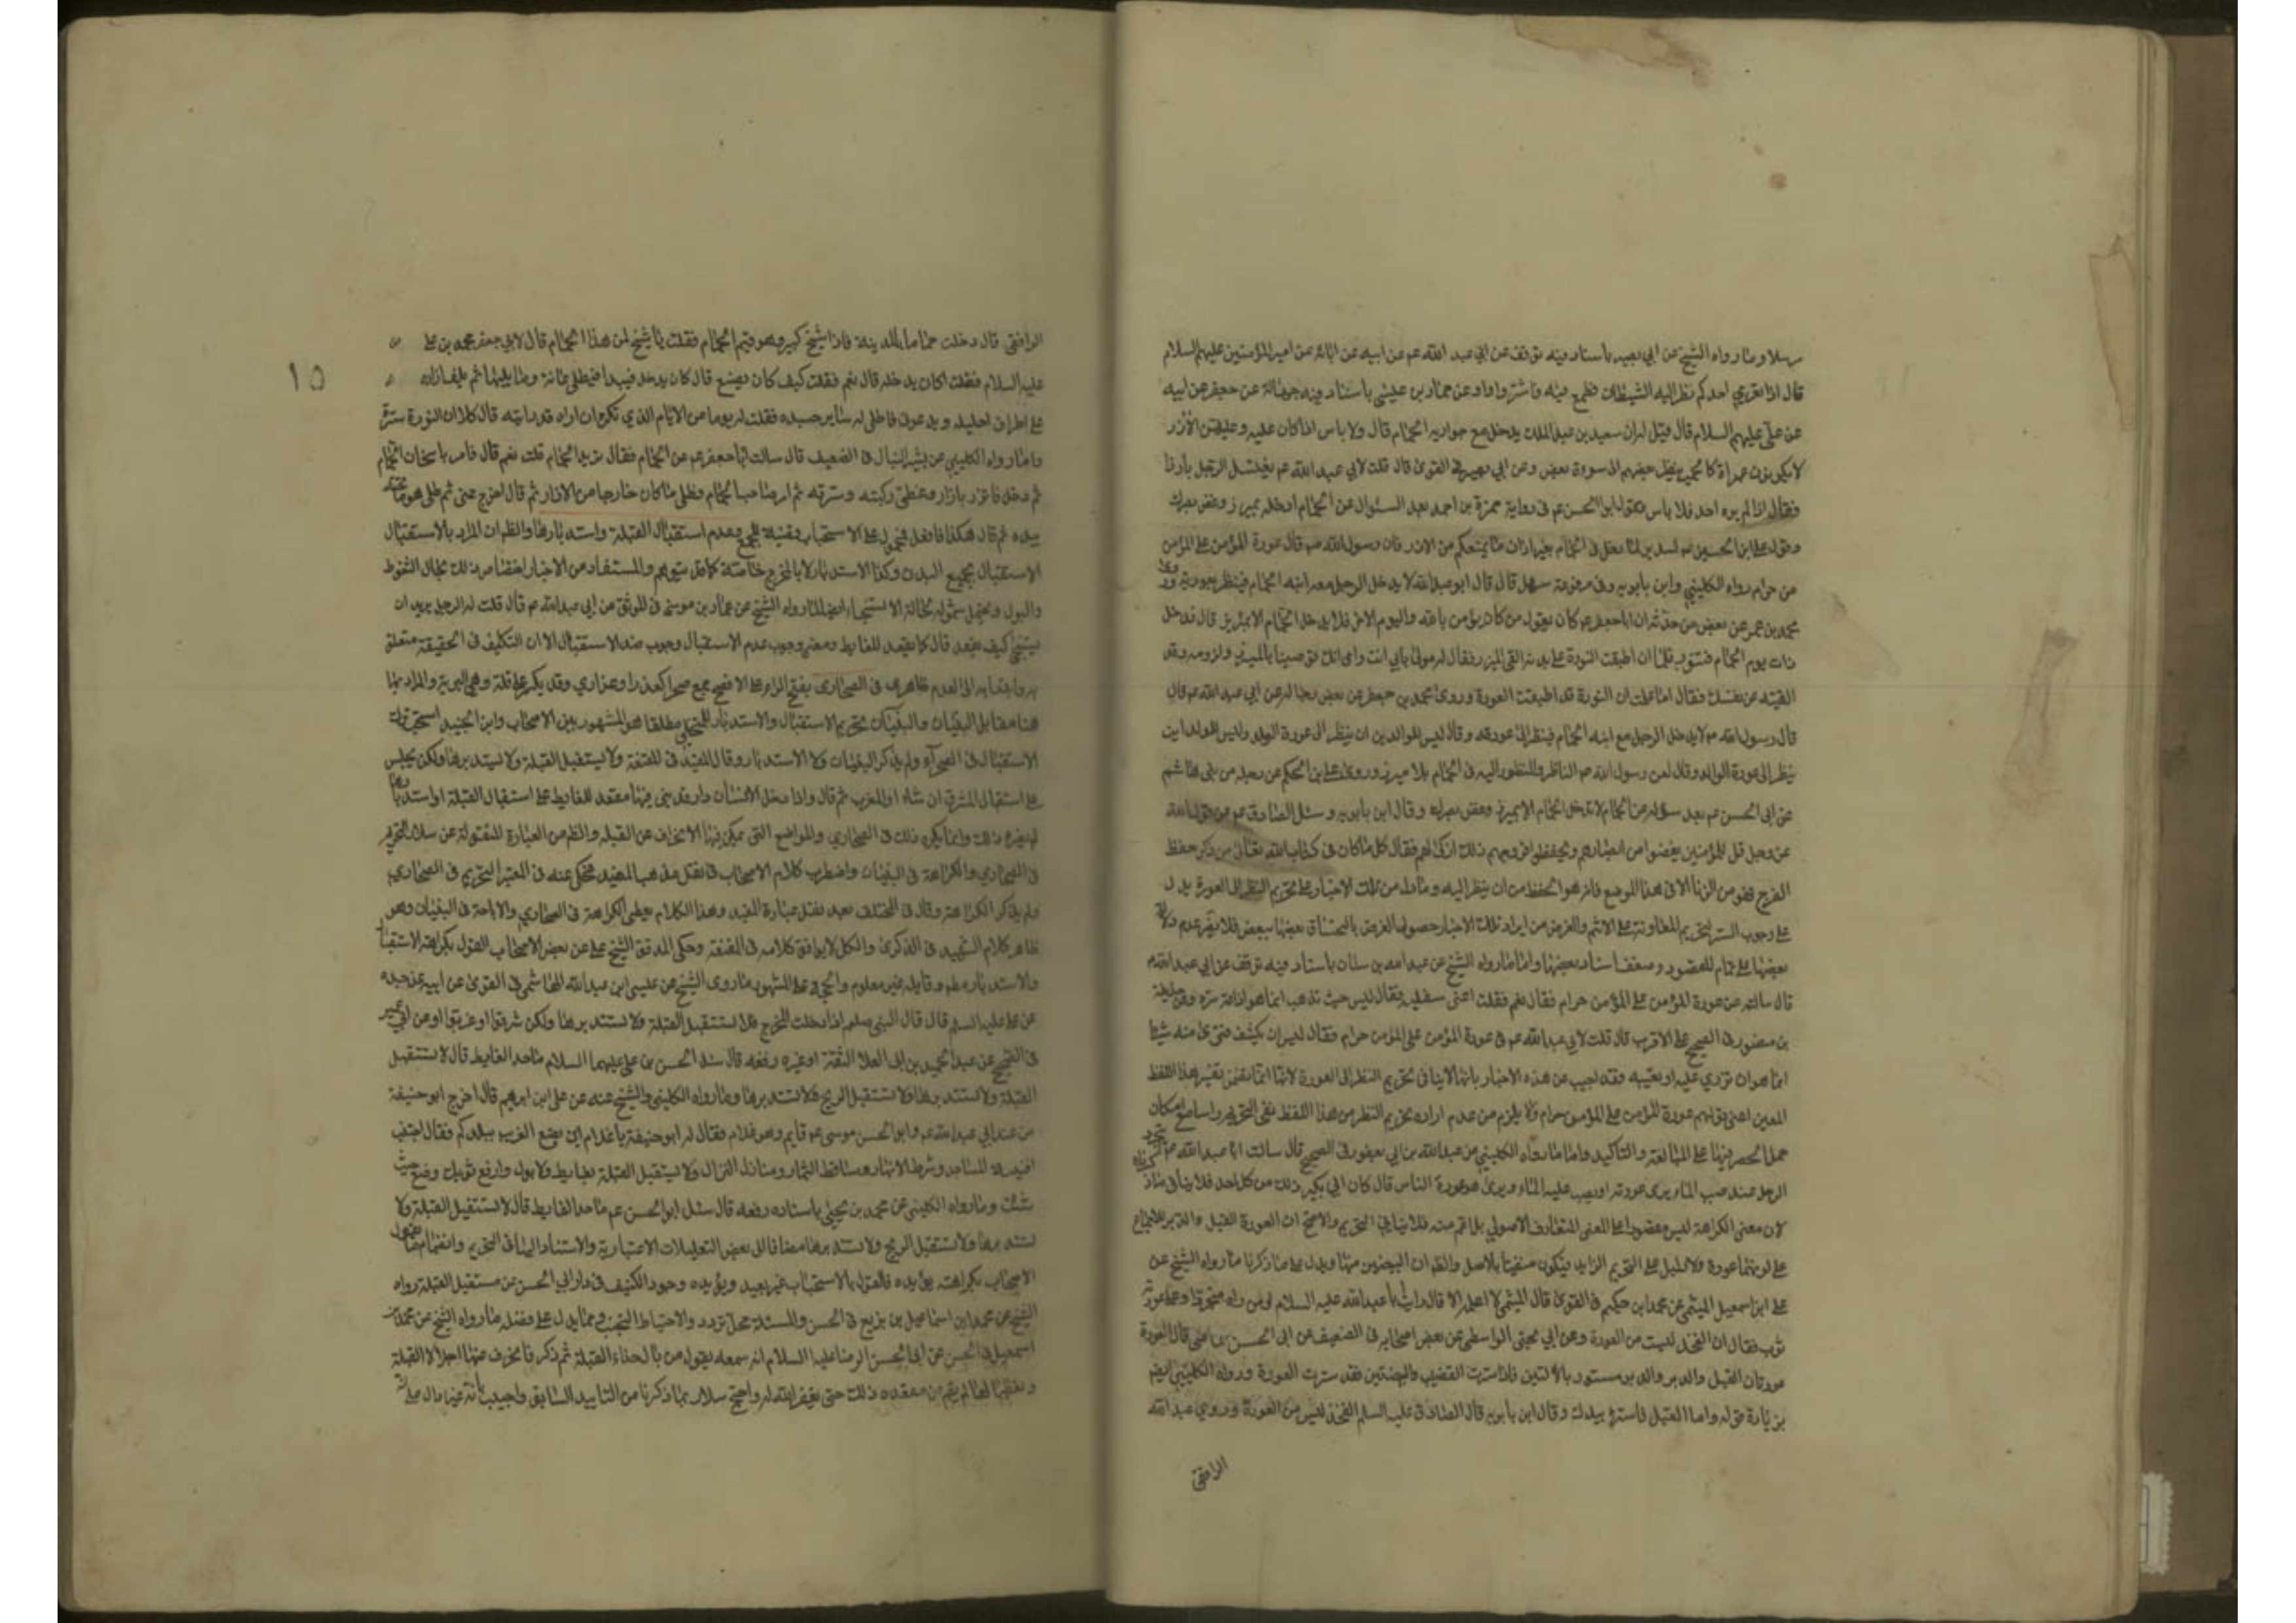 مرسلا وما رواه الشيخ عن ابي بصير باسناد فيه توقف عن ابي عبد الله عم عن ابيه عن ابائه عن امير المؤمنين عليهم السلام
قال اذا تعرى احدكم نظر اليه الشيطان فطمع فيه فاستتروا وعن حماد بن عيسى باسناد فيه جهالة عن جعفر عن ابيه
عن علي عليهم السلام قال قيل له ان سعيد بن عبد الملك يدخل مع جواريه الحمام قال ولا باس اذا كان عليه وعليهن الازر
لا يكونون عراة كالحمير ينظر بعضهم الى سوءة بعض وعن ابي بصير في القوى قال قلت لابي عبد الله عم يغتسل الرجل بارزا
فقال اذا لم يره احد فلا باس وقول ابي الحسن عم في رواية حمزة بن احمد بعد السئوال عن الحمام ادخله بميزر وغض بصرك
وقول علي ابن الحسين عم لسدير لما دخل في الحمام بغير ازار ما يمنعكم من الازر فان رسول الله صم قال عورة المؤمن على المؤمن
من حرام رواه الكليني وابن بابويه وفي مرفوعة سهل قال قال ابو عبد الله لا يدخل الرجل مع ابنه الحمام فينظر بعورته
محمد بن عمر عن بعض من حدثه ان ابا جعفر عم كان يقول من كان يؤمن بالله واليوم الاخر فلا يدخل الحمام الا بميزر قال فدخل
ذات يوم الحمام فتنور فلما ان اطبقت النورة على بدنه القى الميزر فقال له مولى بابي انت وامي انك لتوصينا بالميزر ولزومه وقد
القيته عن نفسك فقال اما علمت ان النورة قد اطبقت العورة وروى محمد بن جعفر عن بعض رجاله عن ابي عبد الله عم قال
قال رسول الله صم لا يدخل الرجل مع ابنه الحمام فينظر الى عورته وقال ليس للوالدين ان ينظر الى عورة الولد وليس للولد ان
ينظر الى عورة الوالد وقال لعن رسول الله صم الناظر والمنظور اليه في الحمام بلا ميزر وروى علي بن الحكم عن رجل من بني هاشم
عن ابي الحسن عم بعد سؤاله عن الحمام لا تدخل الحمام الا بميزر وغض بصرك وقال ابن بابويه وسئل الصادق عم عن قول الله
عز وجل قل للمؤمنين يغضوا من ابصارهم ويحفظوا فروجهم ذلك ازكى لهم فقال كل ما كان في كتاب الله تعالى من ذكر حفظ
الفرج فهو من الزنا الا في هذا الموضع فانه هو الحفظ من ان ينظر اليه وما دل من تلك الاخبار على تحريم النظر الى العورة يدل
على وجوب الستر لتحريم المعاونة على الاثم والغرض من ايراد تلك الاخبار حصول الغرض بالتصاق بعضها ببعض فلا يضر عدم دلالة
بعضها على تمام المقصود وضعف اسناد بعضها واما ما رواه الشيخ عن عبد الله بن سنان باسناد فيه توقف عن ابي عبد الله عم
قال سالته عن عورة المؤمن على المؤمن حرام فقال نعم فقلت اعنى سفليه فقال ليس حيث تذهب انما هو اذاعة سره وعن حذيفة
بن منصور في الصحيح على الاقرب قال قلت لابي عبد الله عم في عورة المؤمن على المؤمن حرام وقال ليس ان يكشف فترى منه شيئا
انما هو ان تزري عليه او تعيبه وقد اجيب عن هذه الاخبار بانها لا ينافي تحريم النظر الى العورة لانها انما تضمن تفسير هذا اللفظ
المعين اعنى قولهم عورة المؤمن على المؤمن حرام ولا يلزم من عدم ارادة تحريم النظر من هذا اللفظ نفى التحريم راسا مع امكان
حمل الحصر فيها على المبالغة والتاكيد واما ما رواه الكليني عن عبد الله بن ابي يعفور في الصحيح قال سالت ابا عبد الله عم يتجرد
الرجل عند صب الماء يرى عورته او يصب عليه الماء ويرى هو عورة الناس قال كان ابي يكره ذلك من كل احد فلا ينافي ما ذكرناه
لان معنى الكراهة ليس مقصورا على المعنى المتعارف الاصولي بل اعم منه فلا ينافي التحريم والاصح ان العورة القبل والدبر للاجماع
على كونهما عورة ولا دليل على التحريم الزايد فيكون منفيا بالاصل والظم ان البيضتين منها ويدل على ما ذكرنا ما رواه الشيخ عن
على ابن اسمعيل الميثمي عن محمد ابن حكيم في القوى قال الميثمي لا اعلمه الا قال رايت ابا عبد الله عليه السلام او من راه متجردا وعلى عورته
ثوب فقال ان الفخذ ليست من العورة وعن ابي يحيى الواسطي عن بعض اصحابه في الضعيف عن ابي الحسن الماضي قال العورة
عورتان القبل والدبر والدبر مستور بالاليتين فاذا سترت القضيب والبيضتين فقد سترت العورة ورواه الكليني ايضم
بزيادة قوله واما القبل فاستره بيدك وقال ابن بابويه قال الصادق عليه السلم الفخذ ليس من العورة وروى عبد الله
الرافقي
١٥
الرافقي قال دخلت حماما بالمدينة فاذا شيخ كبير وهو قيم الحمام فقلت يا شيخ لمن هذا الحمام قال لابي جعفر محمد بن علي
عليه السلام فقلت اكان يدخله قال نعم فقلت كيف كان يصنع قال كان يدخل فيبدا فيطلى عانته وما يليها ثم يلف ازاره
على اطراف احليله ويدعوني فاطلى له ساير جسده فقلت له يوما من الايام الذي تكره ان اراه قد رايته قال كلا ان النورة سترة
واما رواه الكليني عن بشير النبال في الضعيف قال سالت ابا جعفر عم عن الحمام فقال تريد الحمام قلت نعم قال فامر باسخان الحمام
ثم دخل فاتزر بازار وغطى ركبته وسرته ثم امر صاحب الحمام فطلى ما كان خارجا من الازار ثم قال اخرج عني ثم طلى هو ما تحته
بيده ثم قال هكذا فافعل فمحمول على الاستحباب وعدم استقبال القبلة واستدبارها والظم ان المراد بالاستقبال
الاستقبال بجميع البدن وكذا الاستدبار لا بالمخرج خاصة كما قد يتوهم والمستفاد من الاخبار اختصاص ذلك بحال التغوط
والبول ويحتمل شموله لحالة الاستنجاء ايضا لما رواه الشيخ عن عمار بن موسى في الموثق عن ابي عبد الله عم قال قلت له الرجل يريد ان
يستنجي كيف يقعد قال كما يقعد للغايط ومعنى وجوب عدم الاستقبال وجوب ضد الاستقبال الا ان التكليف في الحقيقة متعلق
في الصحارى بفتح الراء على الافصح جمع صحرا كعذرا وعذارى وقد يكسر على قلة وهي البرية والمراد بها
هنا مقابل البنيان والبنيان تحريم الاستقبال والاستدبار للمتخلى مطلقا هو المشهور بين الاصحاب وابن الجنيد استحب ترك
الاستقبال في الصحراء ولم يذكر البنيان ولا الاستدبار وقال المفيد في المقنعة ولا يستقبل القبلة ولا يستدبرها ولكن يجلس
على استقبال المشرق ان شاء او المغرب ثم قال واذا دخل الانسان دارا قد بنى فيها مقعد للغايط على استقبال القبلة او استدبارها
لم يضره ذلك وانما يكره ذلك في الصحاري والمواضع التي يمكن فيها الانحراف عن القبلة والظم من العبارة المنقولة عن سلار التحريم
في الصحاري والكراهة في البنيان واضطرب كلام الاصحاب في نقل مذهب المفيد فحكى عنه في المعتبر التحريم في الصحاري
ولم يذكر الكراهة وقال في المختلف بعد نقل عبارة المفيد وهذا الكلام يعطى الكراهة في الصحاري والاباحة في البنيان وهو
ظاهر كلام الشهيد في الذكرى والكل لا يوافق كلامه في المقنعة وحكى المدقق الشيخ علي عن بعض الاصحاب القول بكراهة الاستقبال
والاستدبار مطم وقايله غير معلوم والحجة على المشهور ما روى الشيخ عن عيسى ابن عبد الله الهاشمي في القوى عن ابيه عن جده
عن علي عليه السلم قال قال النبي صلعم اذا دخلت المخرج فلا تستقبل القبلة ولا تستدبرها ولكن شرقوا او غربوا وعن ابن ابي عمير
في الصحيح عن عبد الحميد بن ابي العلا الثقة او غيره رفعه قال سئل الحسن بن علي عليهما السلام ما حد الغايط قال لا تستقبل
القبلة ولا تستدبرها ولا تستقبل الريح ولا تستدبرها وما رواه الكليني والشيخ عنه عن علي ابن ابراهيم قال اخرج ابو حنيفة
من عند ابي عبد الله عم وابو الحسن موسى عم قايم وهو غلام فقال له ابو حنيفة يا غلام اين يضع الغريب ببلدكم فقال اجتنب
افنية المساجد وشطوط الانهار ومساقط الثمار ومنازل النزال ولا يستقبل القبلة بغايط ولا بول وارفع ثوبك وضع حيث
شئت وما رواه الكليني عن محمد بن يحيى باسناده رفعه قال سئل ابو الحسن عم ما حد الغايط قال لا تستقبل القبلة ولا
تستدبرها ولا تستقبل الريح ولا تستدبرها مضافا الى بعض التعليلات الاعتبارية والاستناد اليها في التحريم
الاصحاب بكراهته يؤيده فالقول بالاستحباب غير بعيد ويؤيده وجود الكنيف في دار ابي الحسن عن مستقبل القبلة رواه
الشيخ عن محمد ابن اسماعيل بن بزيع في الحسن والمسئلة محل تردد والاحتياط التجنب ومما يدل على فضله ما رواه الشيخ عن محمد بن
اسمعيل في الحسن عن ابي الحسن الرضا عليه السلام انه سمعه يقول من بال حذاء القبلة ثم ذكر فانحرف عنها اجلالا للقبلة
وتعظيما لها لم يقم من مقعده ذلك حتى يغفر الله له واحتج سلار بما ذكرنا من التاييد السابق واجيب بانه غير دال على